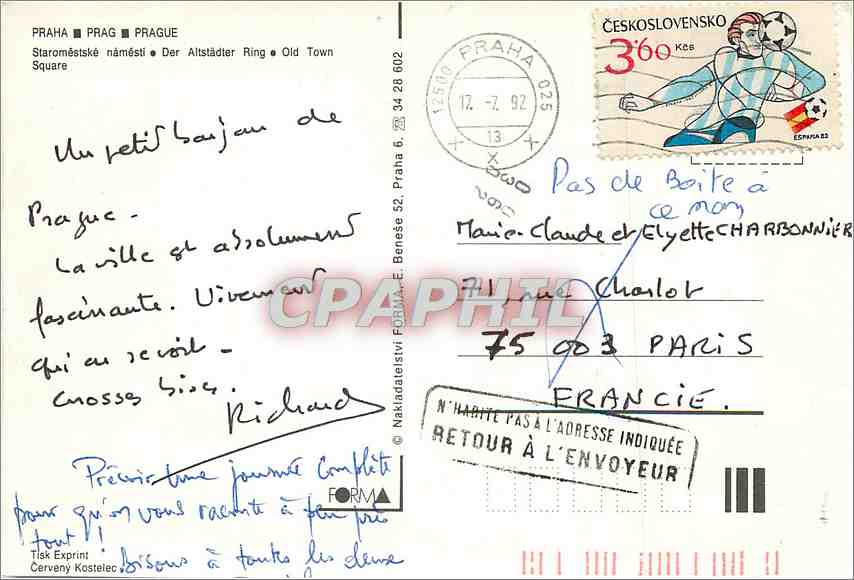 PRAHA ■ PRAG ■ PRAGUE
Staroměstské náměstí ● Der Altstädter Ring ● Old Town
Square
Un petit bonjour de
Prague -
La ville est absolument
fascinante. Vivement
qu'on se voit -
Grosses bises.
Richard
Prévoir une journée complète
pour qu'on vous raconte à peu près
tout !
Bisous à toutes les deux
Tisk Exprint
Červený Kostelec
FORMA
© Nakladatelství FORMA, E. Beneše 52, Praha 6, ☎ 34 28 602
12500 PRAHA 025
17.-7. 92
13
ČESKOSLOVENSKO
3'60 Kčs
ESPAÑA 82
Pas de Boîte à
ce nom
Marie-Claude et Elyette CHARBONNIER
71, rue Charlot
75 003 PARIS
FRANCIE.
N'HABITE PAS À L'ADRESSE INDIQUÉE
RETOUR À L'ENVOYEUR
CPAPHIL